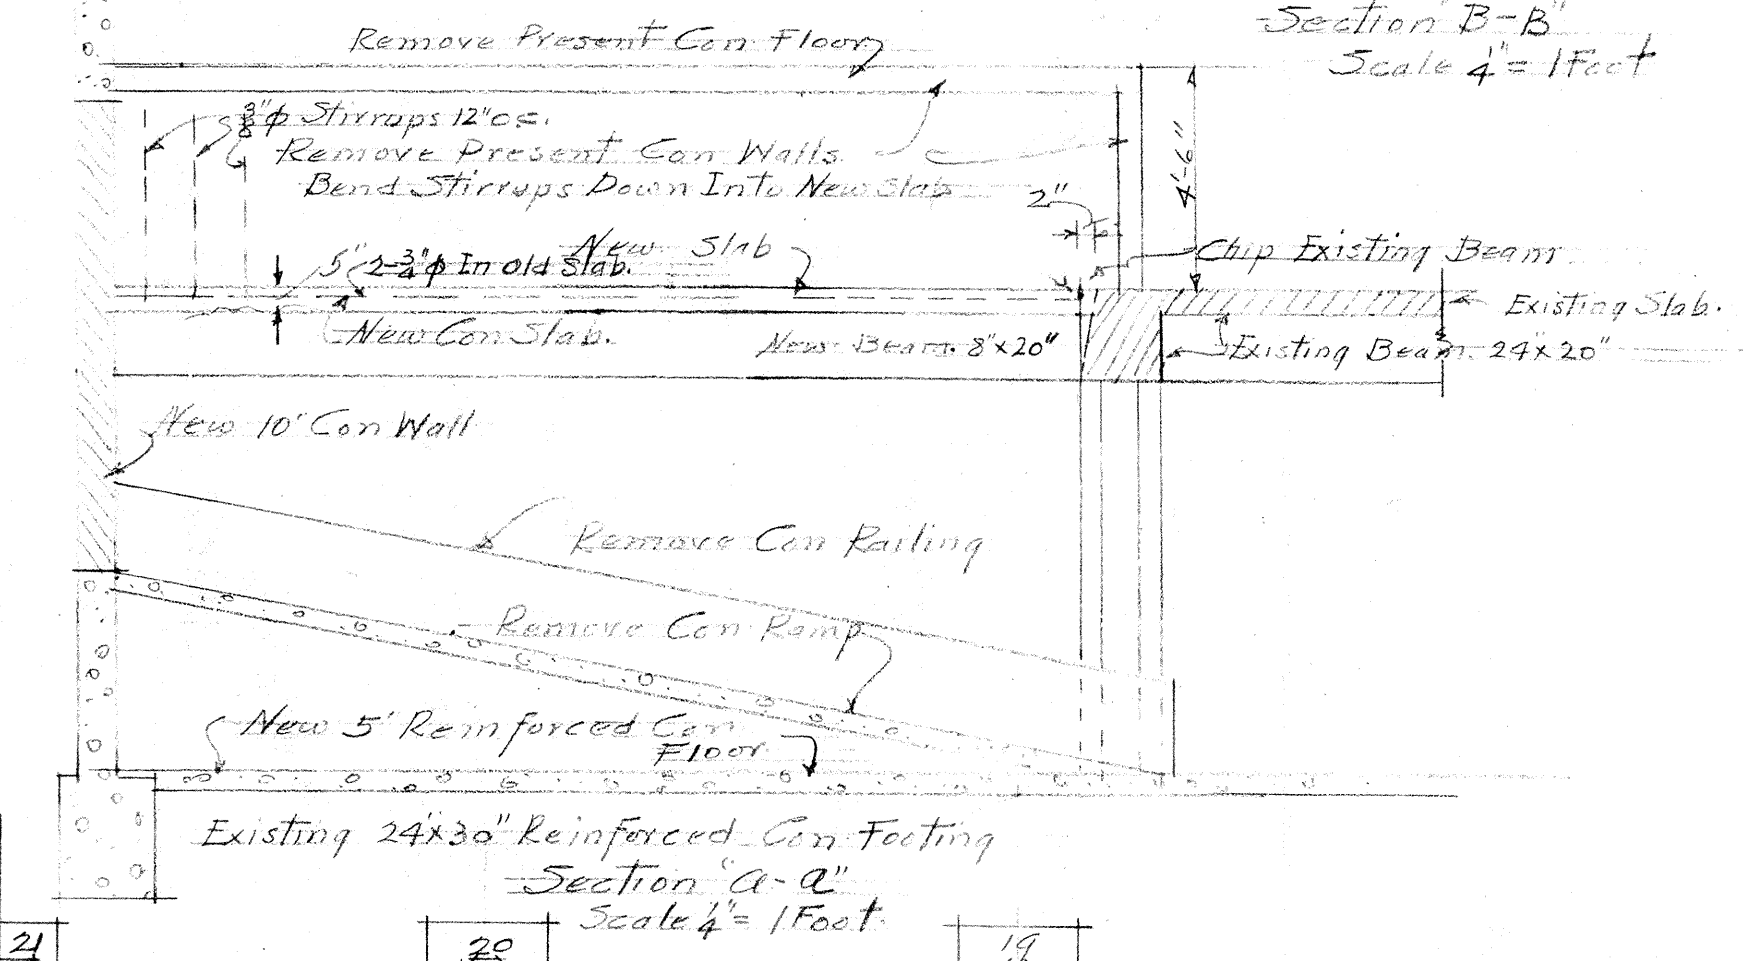 Section "B-B"
Scale 1/4" = 1 Foot
Remove Present Con Floor
3/8" ϕ Stirrups 12" oc.
Remove Present Con Walls
Bend Stirrups Down Into New Slab
2"
4'-6"
New Slab
Chip Existing Beam
5" 2-3/4" ϕ In Old Slab.
Existing Slab.
New Con Slab.
New Beam 8"x20"
Existing Beam 24"x20"
New 10' Con Wall
Remove Con Railing
Remove Con Ramp
New 5' Reinforced Con
Floor
Existing 24"x30" Reinforced Con Footing
Section "a-a"
Scale 1/4" = 1 Foot
21
20
19